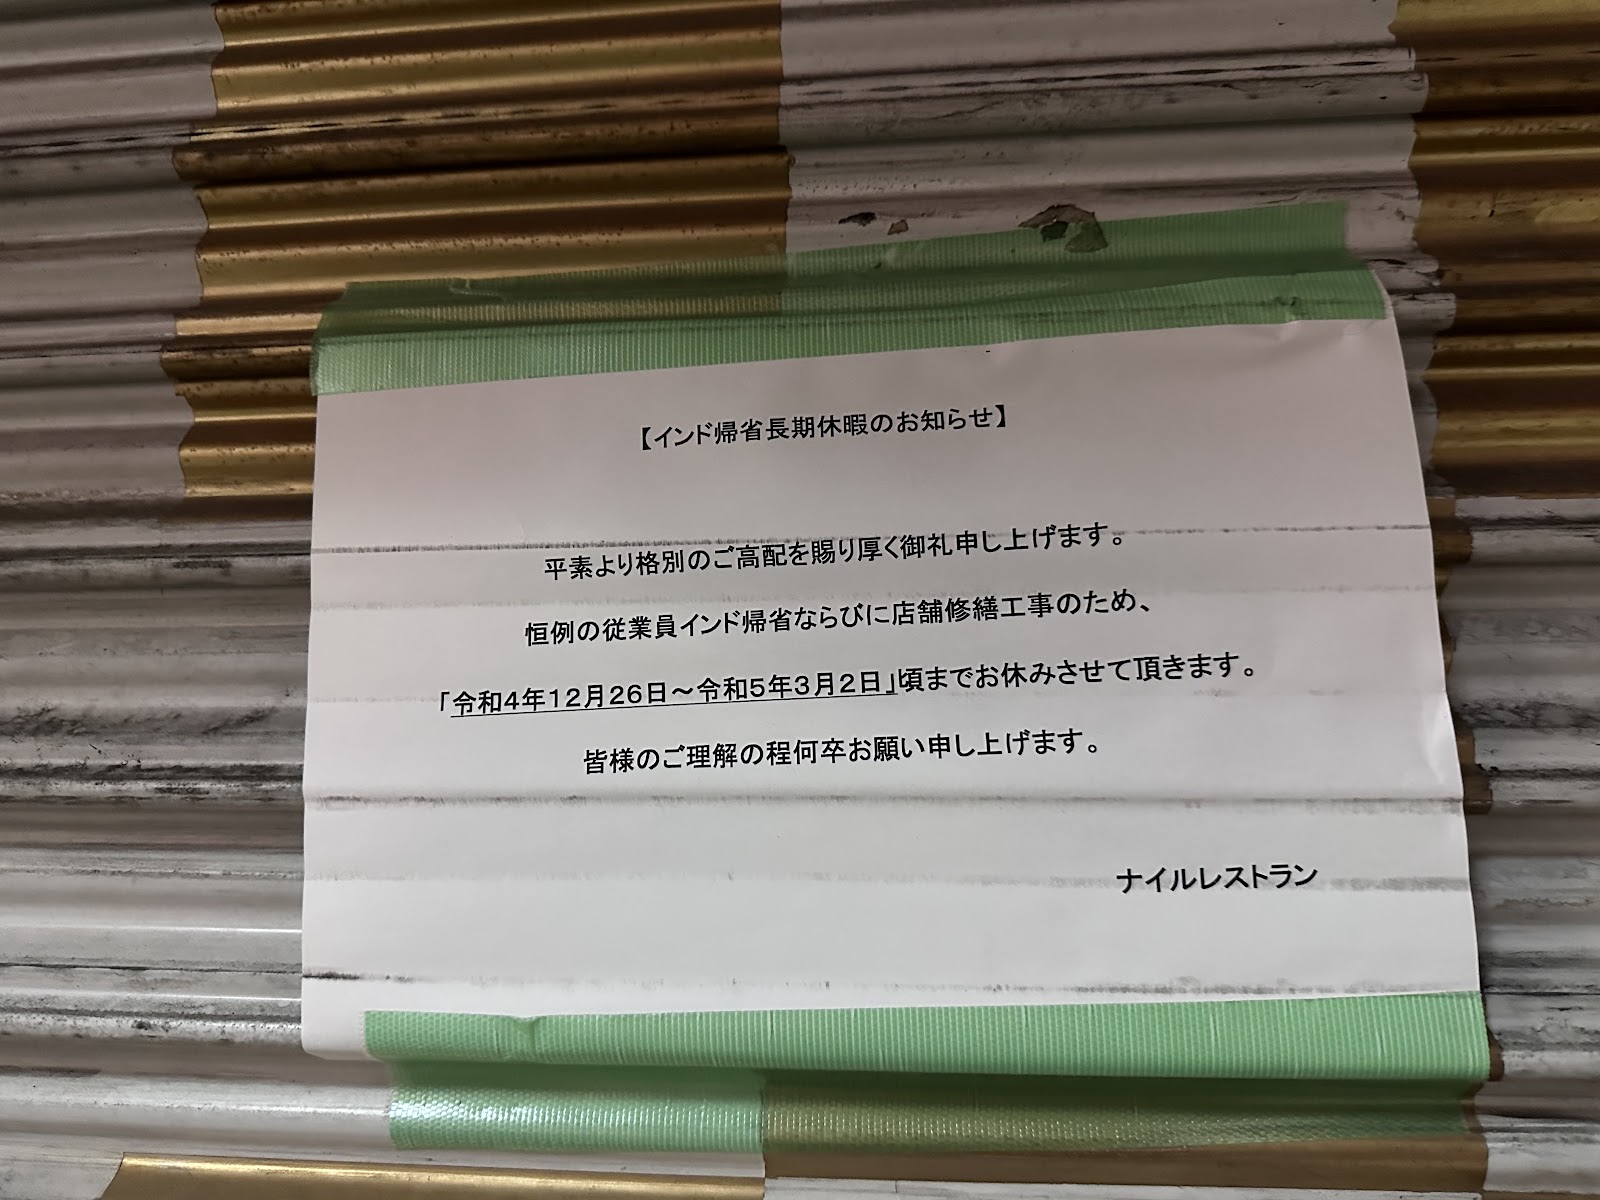 【インド帰省長期休暇のお知らせ】
平素より格別のご高配を賜り厚く御礼申し上げます。
恒例の従業員インド帰省ならびに店舗修繕工事のため、
「令和4年12月26日～令和5年3月2日」頃までお休みさせて頂きます。
皆様のご理解の程何卒お願い申し上げます。
ナイルレストラン